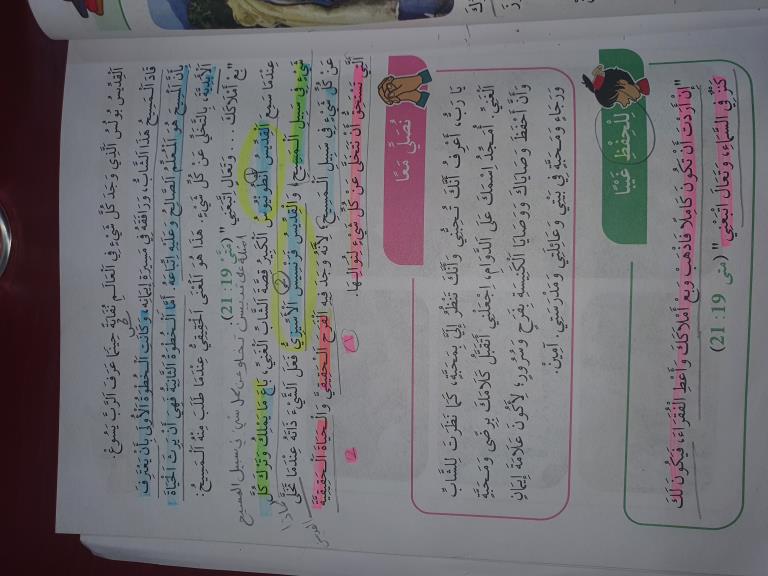 القِدّيسُ بولُسُ الَّذي وَجَدَ كُلَّ شَيْءٍ في العالَمِ نُفايَةً حينَما عَرَفَ الرَّبَّ يَسوعَ.
قادَ المَسيحُ هذا الشّابَّ، وَرافَقَهُ في مَسيرَةِ إيمانِهِ، وَكانَتِ الخُطوَةُ الأولى بِأَنْ يَعْتَرِفَ
بِأَنَّ المَسيحَ هُوَ المُعَلِّمُ الصّالِحُ وَعَلَيْهِ اتِّباعُهُ. أَمّا الخُطوَةُ الثّانِيَةُ فَهِيَ أَنْ يَرِثَ الحَياةَ
الأَبَدِيَّةَ، بِالتَّخَلّي عَنْ كُلِّ شَيْءٍ. هذا هُوَ الغِنى الحَقيقِيُّ عِنْدَما طَلَبَ مِنْهُ المَسيحُ:
"بِعْ أَمْلاكَكَ ... وَتَعالَ اتْبَعْني" (مَتّى 19: 21).
تخلو عن كل شي في سبيل المسيح
عِنْدَما سَمِعَ القِدّيسُ أَنْطونيوسُ الكَبيرُ قِصَّةَ الشّابِّ الغَنِيِّ، باعَ ما يَمْلِكُ وَتَرَكَ كُلَّ
شَيْءٍ في سَبيلِ المَسيحِ، وَالقِدّيسُ فَرَنْسيسُ الأَسّيزِيُّ فَعَلَ الشَّيْءَ ذاتَهُ عِنْدَما تَخَلّى
لماذا
عَنْ كُلِّ شَيْءٍ في سَبيلِ المَسيحِ؛ لِأَنَّهُ وَجَدَ فيهِ الفَرَحَ الحَقيقِيَّ وَالحَياةَ الحَقيقِيَّةَ
الَّتي تَسْتَحِقُّ أَنْ نَتَخَلّى عَنْ كُلِّ شَيْءٍ لِنَوالِها.
نُصَلّي مَعًا
يا رَبُّ، أَعْرِفُ أَنَّكَ تُحِبُّني وَأَنَّكَ تَنْظُرُ إِلَيَّ بِمَحَبَّةٍ، كَما نَظَرْتَ لِلشّابِّ
الغَنِيِّ. أُمَجِّدُ اسْمَكَ عَلى الدَّوامِ، اِجْعَلْني أَتَقَبَّلُ كَلامَكَ بِرِضًى وَمَحَبَّةٍ
وَأَنْ أَحْفَظَ وَصاياكَ وَوَصايا الكَنيسَةِ بِفَرَحٍ وَسُرورٍ؛ لِأَكونَ عَلامَةَ إيمانٍ
وَرَجاءٍ وَمَحَبَّةٍ في بَيْتي وَعائِلَتي وَمَدْرَسَتي. آمين.
لِلْحِفْظِ غَيْبًا
"إِنْ أَرَدْتَ أَنْ تَكونَ كامِلًا فَاذْهَبْ وَبِعْ أَمْلاكَكَ وَأَعْطِ الفُقَراءَ، فَيَكونَ لَكَ
كَنْزٌ في السَّماءِ، وَتَعالَ اتْبَعْني" (متى 19: 21)